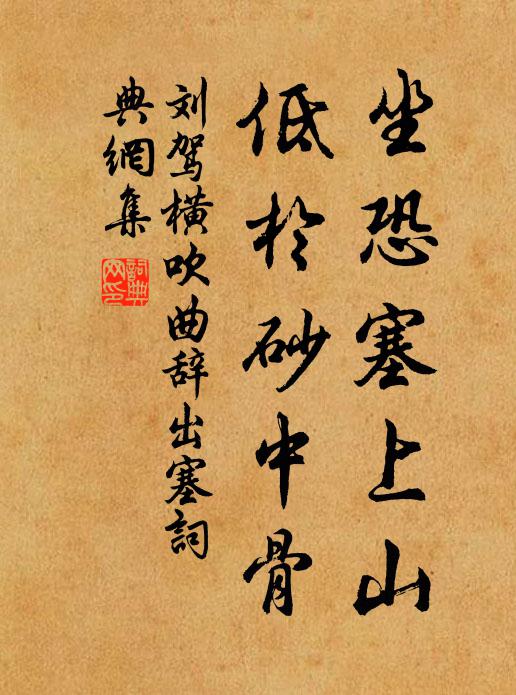 坐恐塞上山
低於砂中骨
刘驾横吹曲辞出塞詞
典網集
詞典
网印